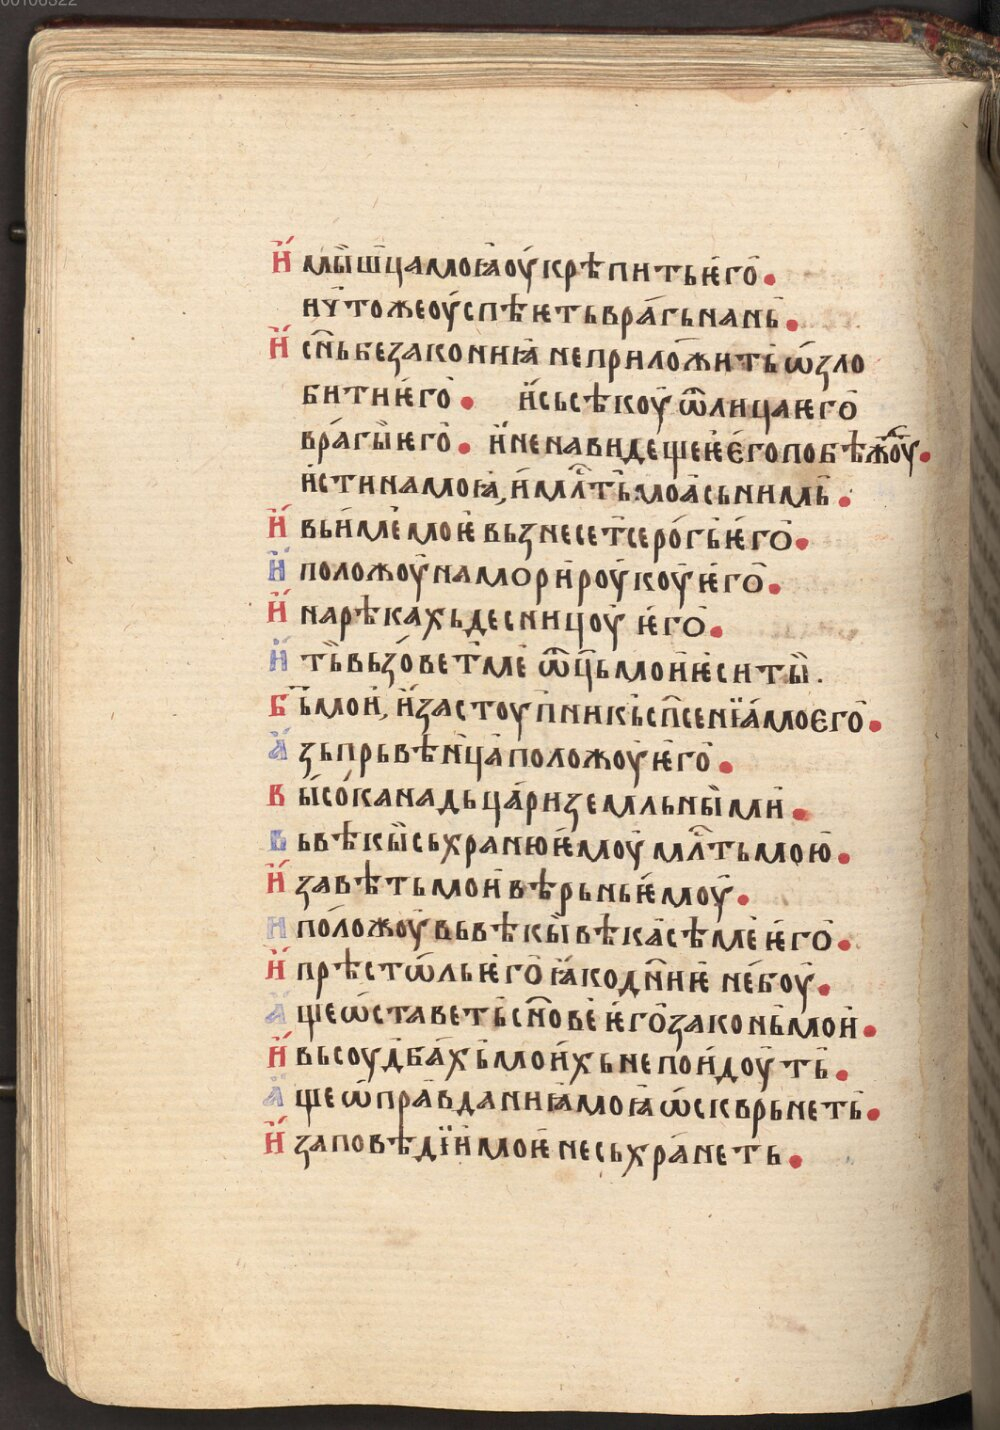 00106322
И҆ мы́шцамоꙗоу҆крѣпитьѥ҆го̀.
ничтожеоу҆спѣѥтьвра́гьнань.
И҆ сн҃ьбезакониꙗ неприло́жить ѡ҆зло
битиѥ҆го̀. и҆сьсѣкоу ѿлицаѥго̀
вра́гыѥго̀. и҆ненавидещеѥѥ҆гопобѣжоу.
и҆стинамоꙗ, и҆мл҃тьмоꙗ̀сьнимь.
И҆ вьи҆ме моѥ вьзнесетсеро́гьѥ҆го̀.
И҆ положоу наморироукоуѥ҆го̀.
И҆ нарѣкахьдесницоу ѥ҆го̀.
И҆ тьвьзо́ветме ѿц҃ьмои ѥси ты.
Б ьмои, и҆застоупникьсп҃сенїа́моѥго̀.
А҆ зьпрьвѣнцаположоуѥго̀.
В ысо́канадьца́риземльными.
В ьвѣкысьхранюѥ҆моу мл҃тьмою.
И҆ завѣтьмои вѣрьньѥ҆моу.
И положоувьвѣкывѣкасѣмеѥ҆го̀.
И҆ прѣсто́льѥ҆го ꙗ҆кодн҃иѥ не́боу.
А҆ щеѡ҆ставетьсн҃овеѥ҆го̀законьмои.
И҆ вьсоудбахьмои́хьнепои́доуть.
А҆ щеѡ҆правданиꙗмоꙗ ѡ҆скврьнеть.
И҆ заповѣдїимоѥ несьхра́неть.